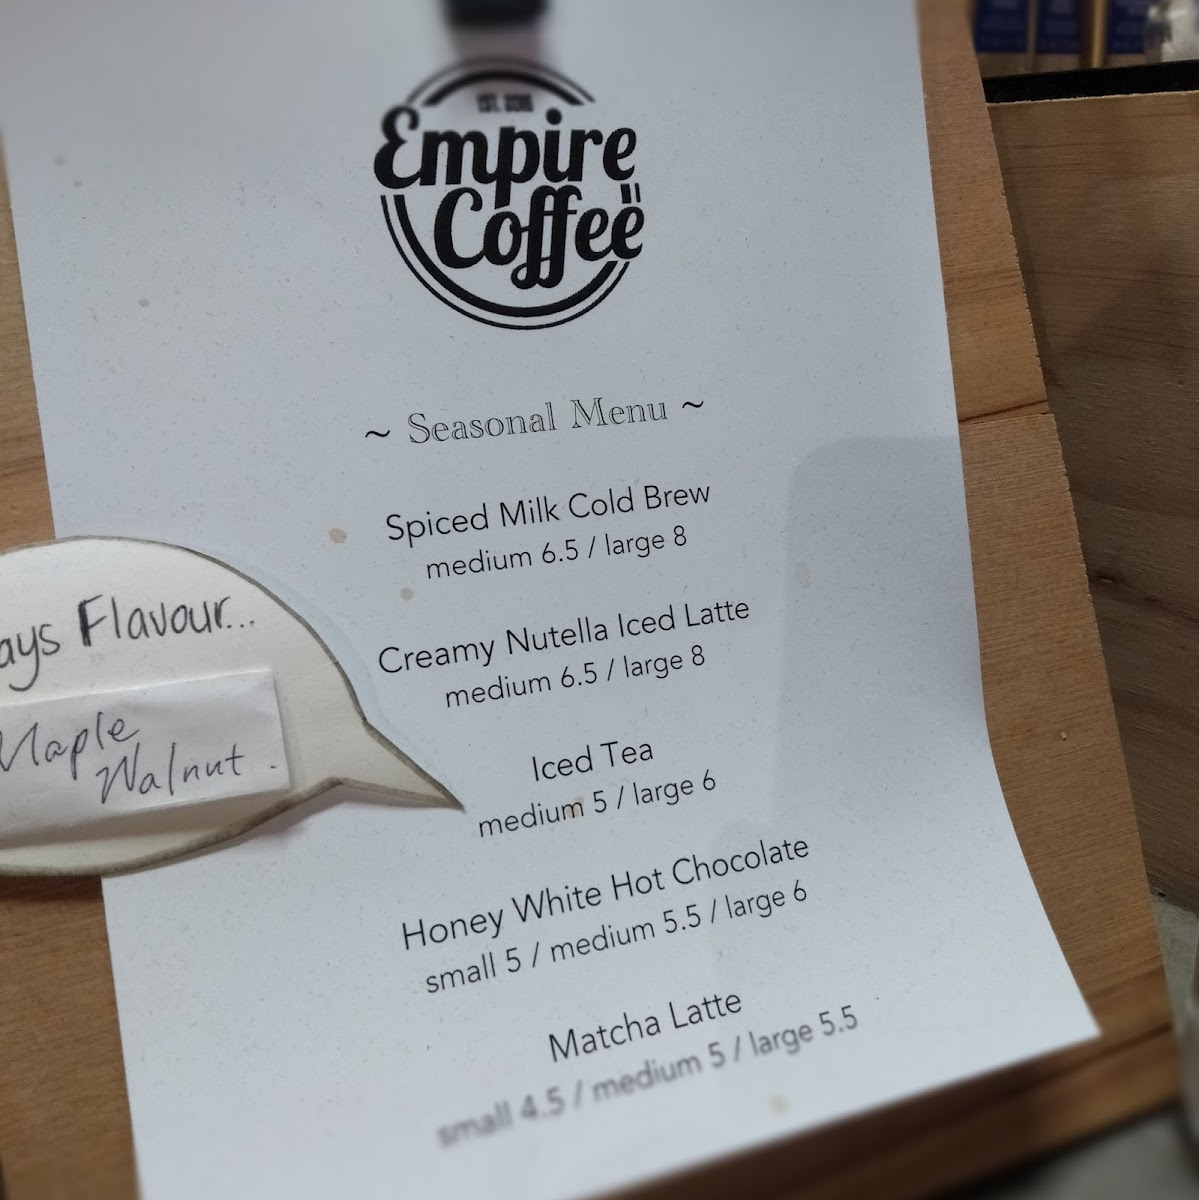 EST. 2016
Empire
Coffee
~ Seasonal Menu ~
Spiced Milk Cold Brew
medium 6.5 / large 8
Creamy Nutella Iced Latte
medium 6.5 / large 8
Iced Tea
medium 5 / large 6
Honey White Hot Chocolate
small 5 / medium 5.5 / large 6
Matcha Latte
small 4.5 / medium 5 / large 5.5
ays Flavour...
Maple
Walnut.